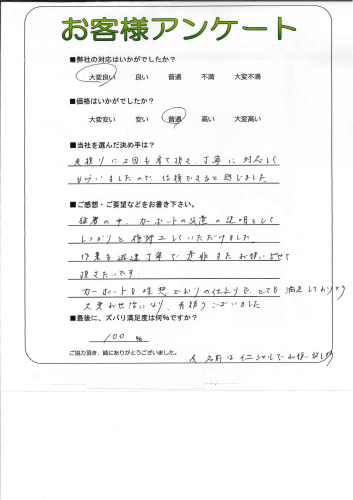 お客様アンケート
■弊社の対応はいかがでしたか?
大変良い 良い 普通 不満 大変不満
■価格はいかがでしたか?
大変安い 安い 普通 高い 大変高い
■当社を選んだ決め手は?
見積りに2回も来て頂き、丁寧に対応して
もらいましたので、信頼できると感じました。
■ご感想・ご要望などをお書き下さい。
猛暑の中、カーポートの設置の説明をして、
しっかりと施工していただけました。
作業も迅速丁寧で是非またお願いさせて
頂きたいです。
カーポートも理想どおりの仕上りで、とても満足しております
大変お世話になり、有難うございました
■最後に、ズバリ満足度は何%ですか?
100 %
ご協力頂き、誠にありがとうございました。
名前はイニシャルでお願い致します